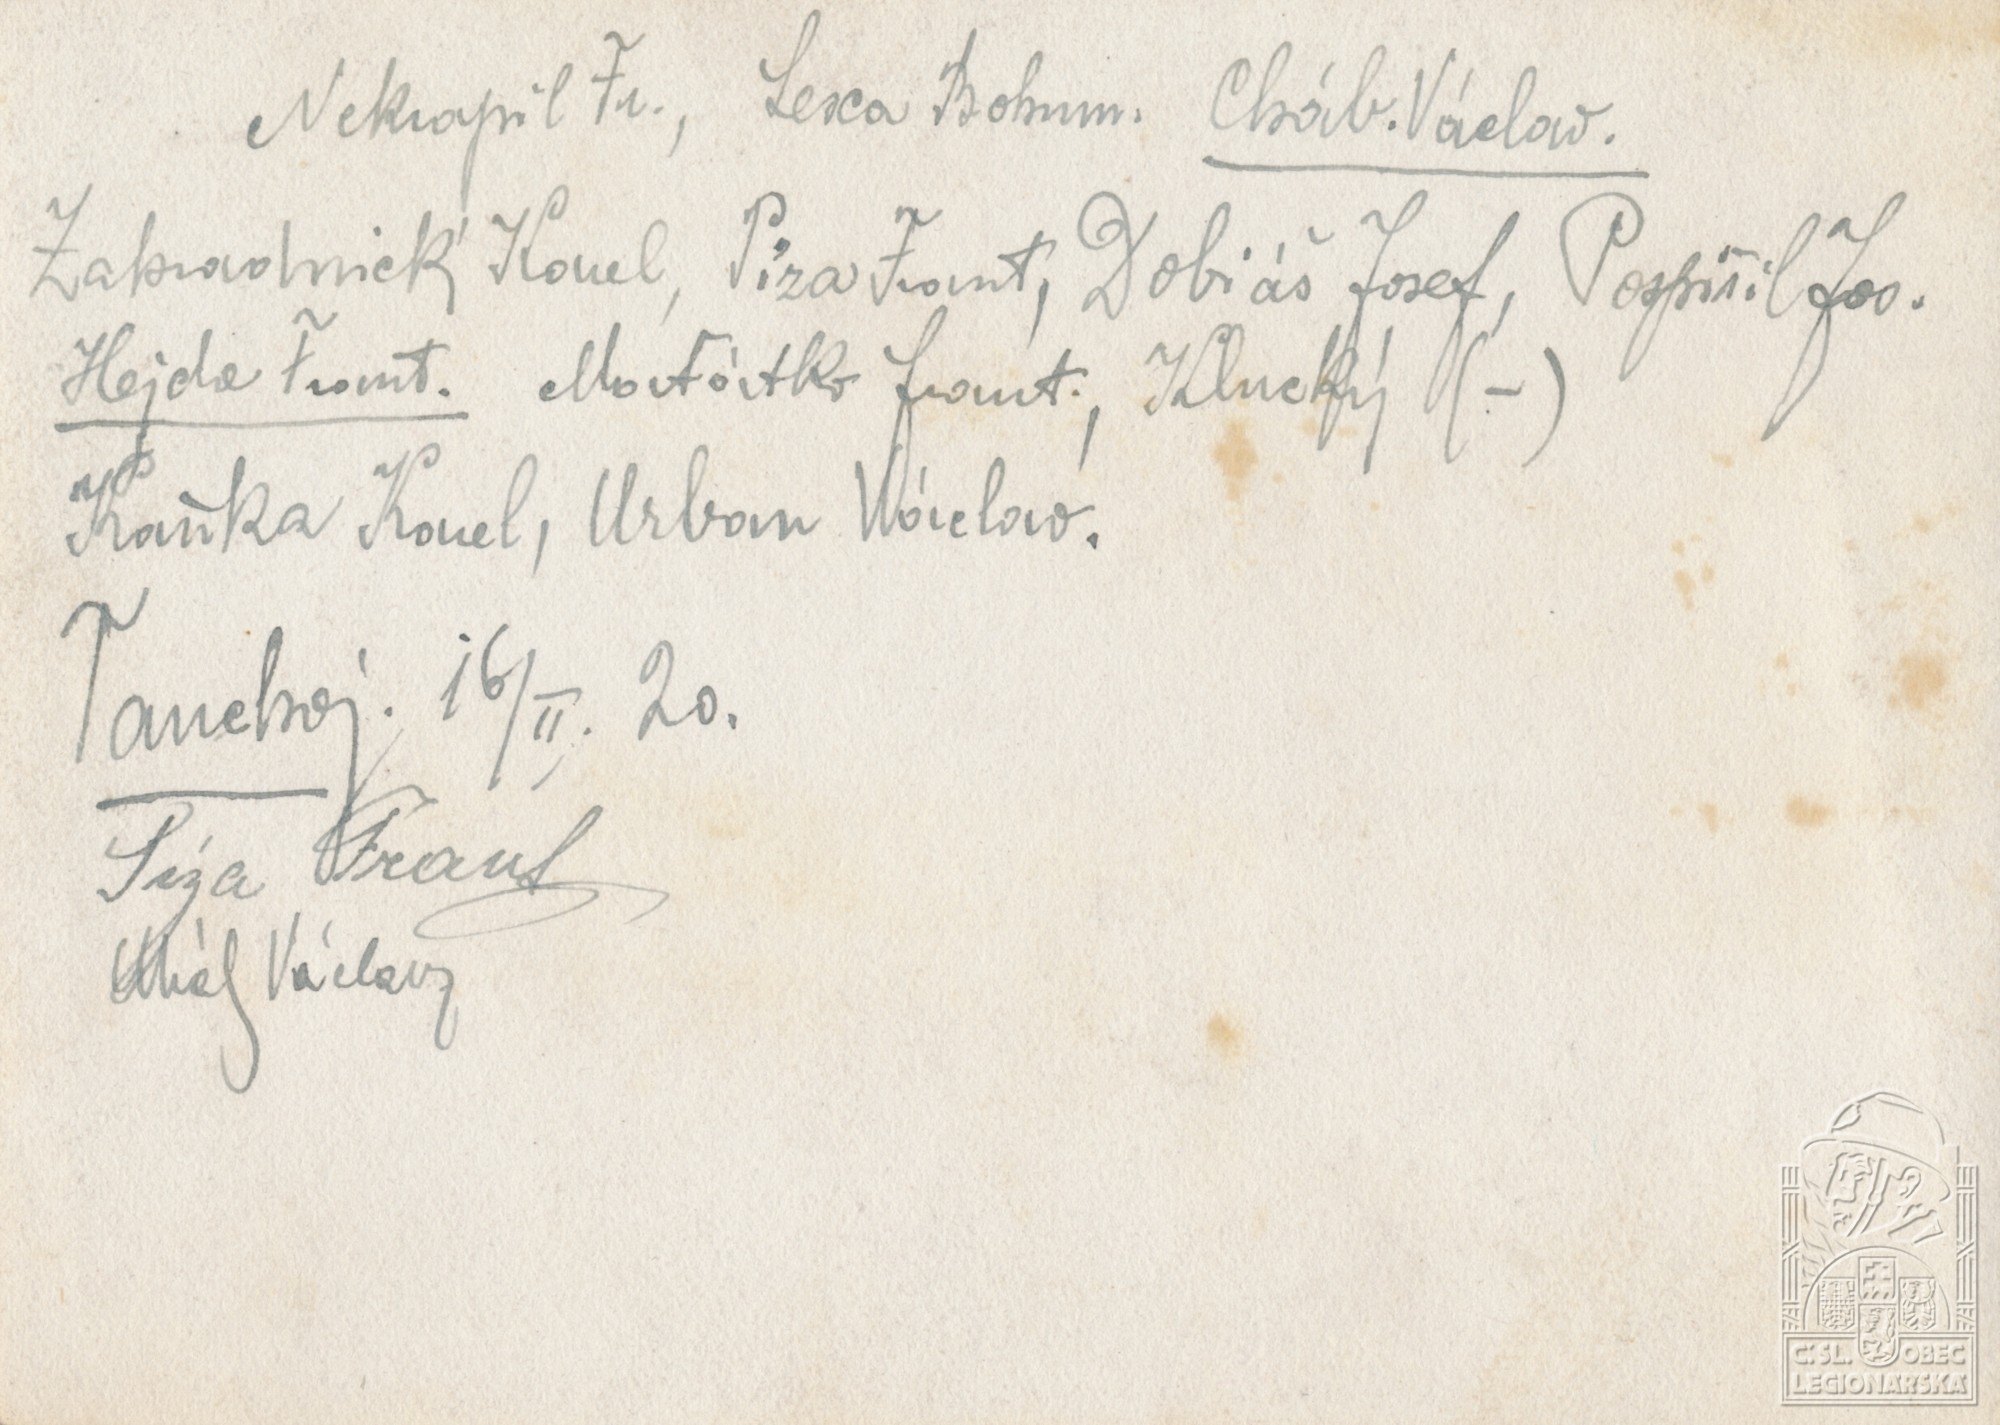 Nekvapil Fr., Lexa Bohum. Cháb. Václav.
Zahradnický Karel, Píza Frant, Dobiáš Josef, Pospíšil Jos.
Hejda Frant. Frant., Klucký (-)
Kaňka Karel, Urban Václav.
Tauchoj. 16/II. 20.
Píza Frant
Václav
Č. SL. OBEC
LEGIONÁŘSKÁ